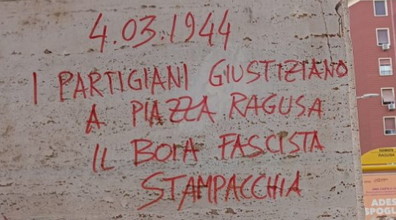 4.03.1944
I PARTIGIANI GIUSTIZIANO
A PIAZZA RAGUSA
IL BOIA FASCISTA
STAMPACCHIA
ADES
SPOGL